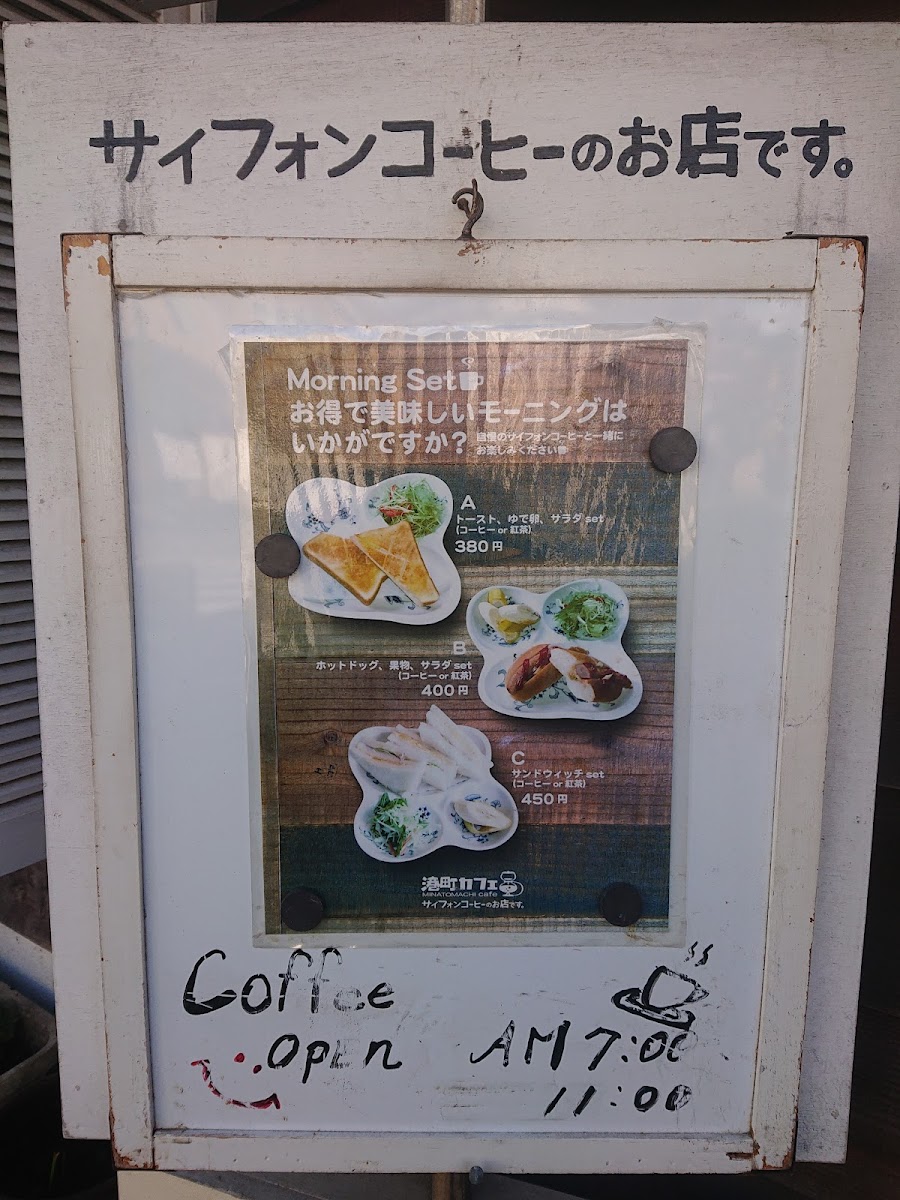 サイフォンコーヒーのお店です。
Morning Set
お得で美味しいモーニングは
いかがですか?
自慢のサイフォンコーヒーと一緒に
お楽しみください
A
トースト、ゆで卵、サラダ set
(コーヒー or 紅茶)
380円
B
ホットドッグ、果物、サラダ set
(コーヒー or 紅茶)
400円
C
サンドウィッチ set
(コーヒー or 紅茶)
450円
港町カフェ
MINATOMACHI cafe
サイフォンコーヒーのお店です。
Coffee
Open AM 7:00
11:00